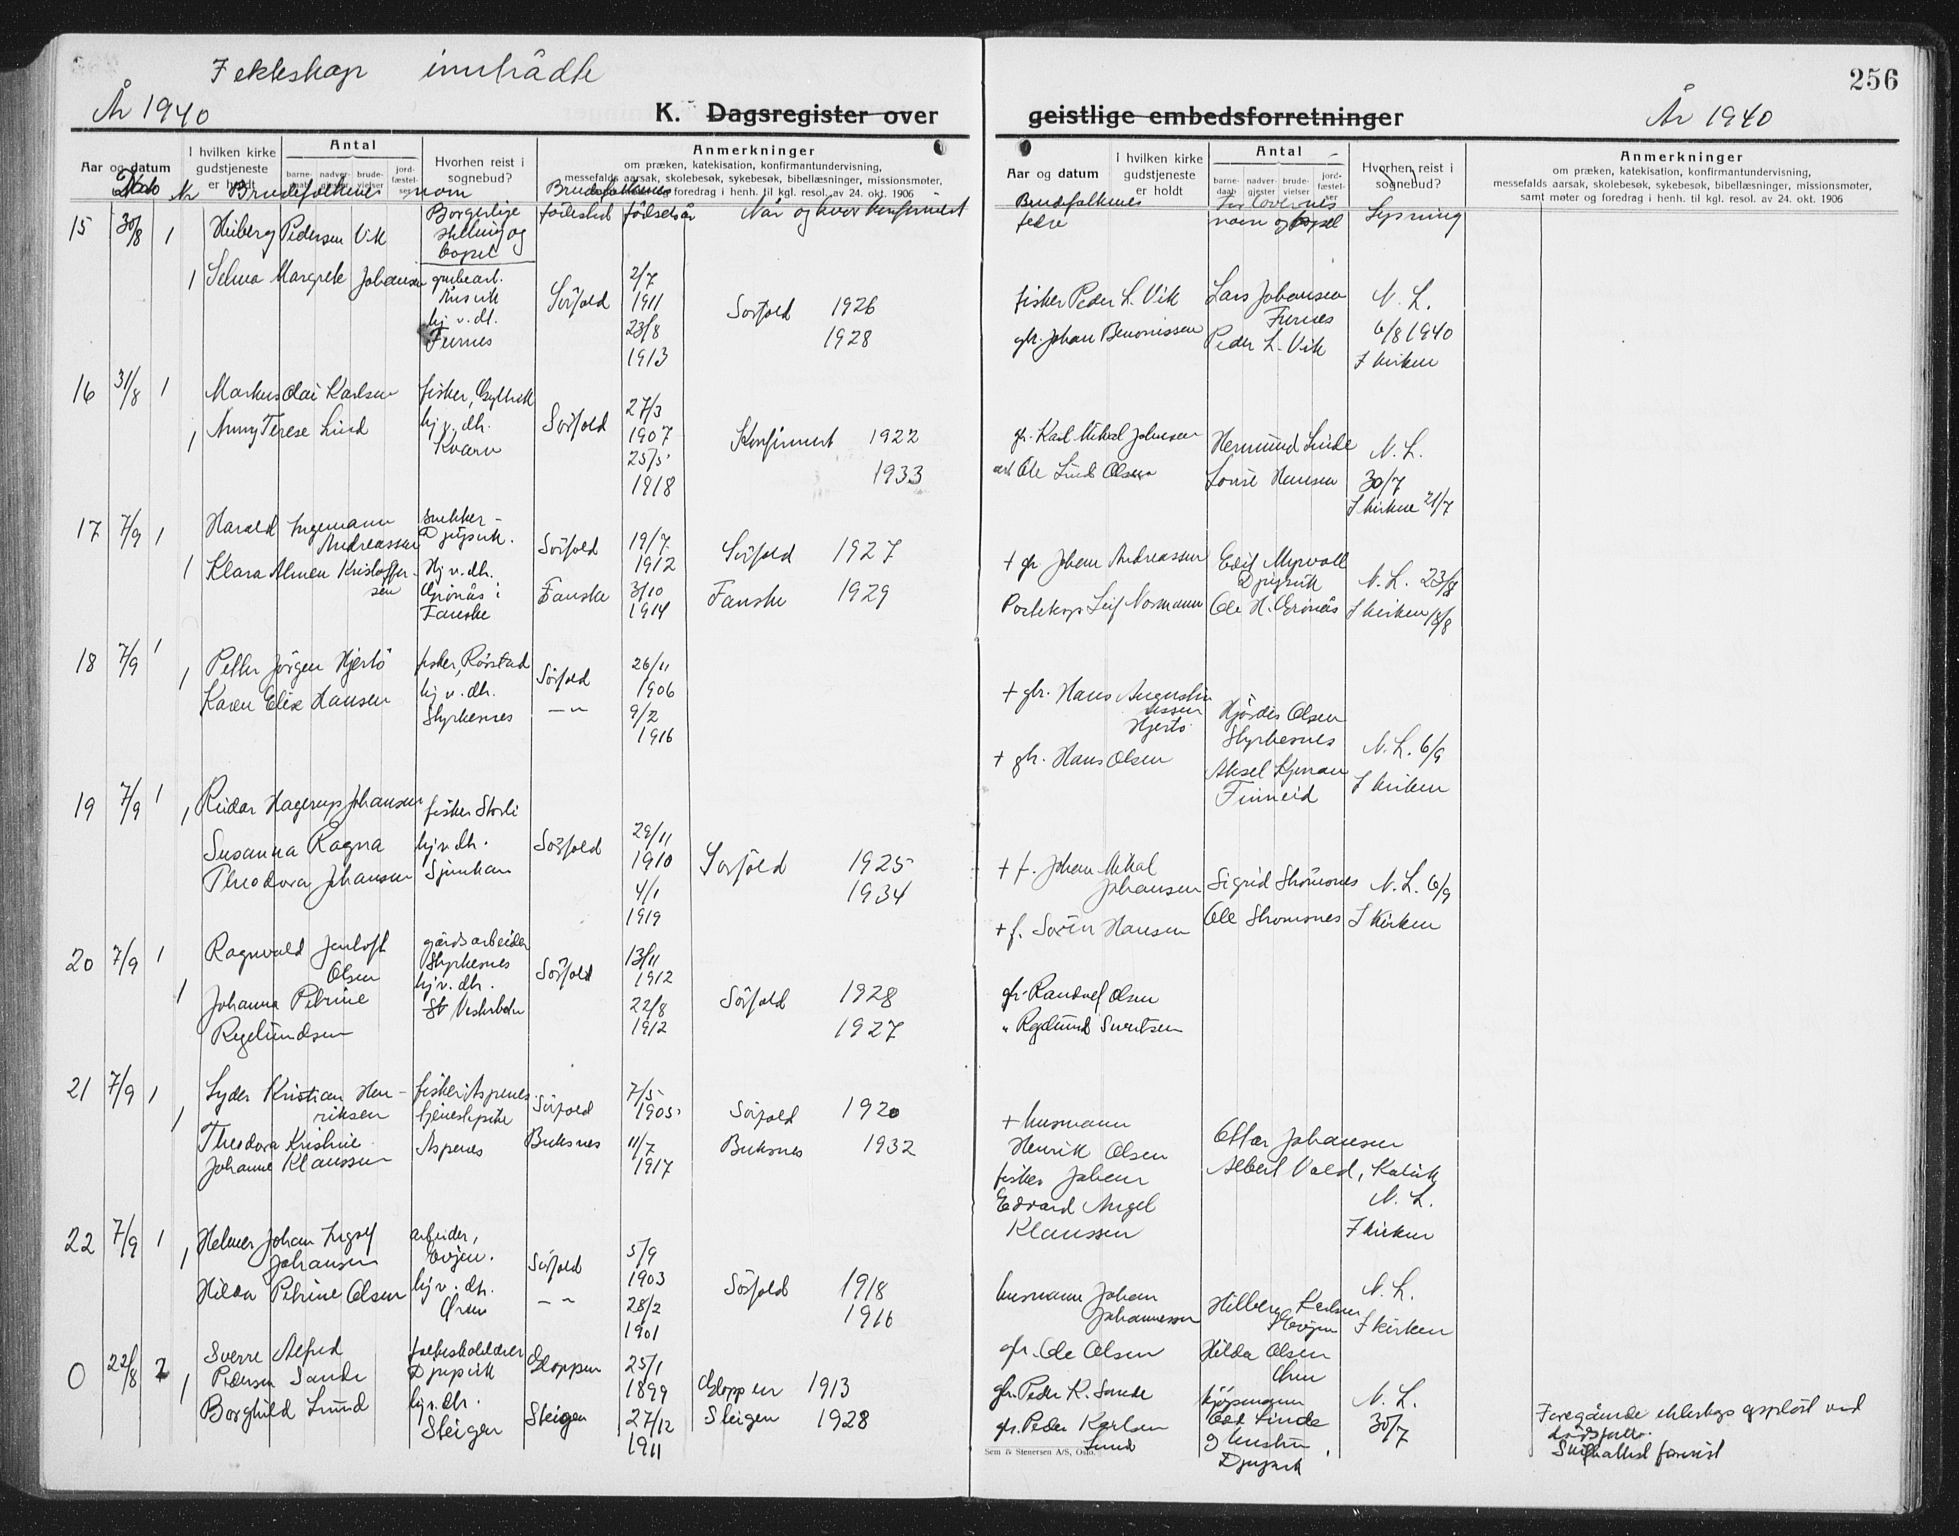 I ekteskap inntrådte
År 1940
K. Dagsregister over
geistlige embedsforretninger
År 1940
256
Aar og datum
I hvilken kirke gudstjeneste er holdt
Antal
barne-daab
nadver-gjester
brude-vielser
jord-fæstel-ser
Hvorhen reist i sognebud?
Anmerkninger
om præken, katekisation, konfirmantundervisning,
messefalds aarsak, skolebesøk, sykebesøk, bibellæsninger, missionsmøter,
samt møter og foredrag i henh. til kgl. resol. av 24. okt. 1906
Aar og datum
I hvilken kirke gudstjeneste er holdt
Antal
barne-daab
nadver-gjester
brude-vielser
jord-fæstel-ser
Hvorhen reist i sognebud?
Anmerkninger
om præken, katekisation, konfirmantundervisning,
messefalds aarsak, skolebesøk, sykebesøk, bibellæsninger, missionsmøter,
samt møter og foredrag i henh. til kgl. resol. av 24. okt. 1906
Dato Nr Brudefolkenes navn
Borgerlige stilling og bopel
Brudefolkenes
fødested fødselsår
Når og hvor konfirmert
Brudefolkenes fedre
Forlovernes navn og bopel
Lysning
15 30/8 1 Heiberg Pedersen Vik
1 Selma Margrete Johansen
grubearb.
hj v. dh.
Furnes
Sørfold
2/7
1911
23/8
1913
Sørfold 1926
1928
fisker Peder L. Vik
gbr. Johan Benonissen
Lars Johansen
Furnes
Peder L. Vik
N. L.
6/8 1940
I kirken
16 31/8 1 Markus Olai Karlsen
1 Anny Terese Lind
fisker,
hj v. dh.
Kvarv
Sørfold
27/3
1907
25/5
1918
Konfirmert 1922
1933
gbr. Karl Mikal Johansen
arb Ole Lind Olsen
Hermund Linde
Hansen
N. L.
30/7
I kirken 21/7
17 7/9 1 Harald Ingemann
Andreassen
1 Klara Almen Kristoffer-
sen
snekker -
Djupvik.
Hj v. dh.
Grønås i
Fauske
Sørfold
Fauske
19/7
1912
3/10
1914
Sørfold 1927
Fauske 1929
+ gbr Johan Andreassen
Leif Normann
Edit Myrvoll
Djupvik
Ole H. Grønås
N. L. 23/8
I kirken 18/8
18 7/9 1
1 Petter Jørgen Hjertø
Karen Elise Hansen
fisker, Rørstad
hj v. dh.
Styrkesnes
Sørfold
— " —
26/11
1906
9/2
1916
+ gbr. Hans Augustinussen
Hjertø
+ gbr. Hans Olsen
Hjørdis Olsen
Styrkesnes
Aksel
Finneid
N. L. 6/9
I kirken
19 7/9 1
1 Reidar Hagerup Johansen
Susanna Ragna
Theodora Johansen
fisker Storli
hj v. dh.
Sjunhavn
Sørfold
29/11
1910
4/1
1919
Sørfold 1925
1934
+ f. Johan Mikal
Johansen
+ f. Sørin Hansen
Sigrid Strømsnes
Ole Strømsnes
N. L. 6/9
I kirken
20 7/9 1 Ragnvald Jentoft
Olsen
1 Johanna Petrine
Regelundsen
gårdsarbeider
Styrkesnes
hj v. dh.
Sørfold
13/11
1912
22/8
1912
Sørfold 1928
1927
gbr. Randulf Olsen
" Regelund Sivertsen
21 7/9 1 Syder Kristian Hen-
riksen
1 Theodora Kristine
Johanne Klaussen
fisker, Aspenes
tjenestepike
Aspenes
Sørfold
Buksnes
7/5
1905
11/7
1917
Sørfold 1920
Buksnes 1932
+ husmann
Henrik Olsen
fisker Johan
Edvard Angel
Klaussen
Ottar Johansen
Albert Vold,
N. L.
I kirken
22 7/9 1
1 Helmer Johan Ingolf
Johansen
Hilda Petrine Olsen
arbeider,
Evjen.
hj v. dh.
Øren
Sørfold
— " —
5/9
1903
28/2
1901
Sørfold 1918
1916
husmann Johan
Johannessen
gbr. Ole Olsen
Hilberg Karlsen
Evjen
Hilda Olsen
Øren
N. L.
I kirken
0 22/8
1 Sverre Alfred
Pedersen Sande
Borghild Lund
Djupvik
hj v. dh.
Steigen
Gloppen
Steigen
25/1
1899
27/12
1911
Gloppen 1913
Steigen 1928
gbr. Peder K. Sande
gbr. Peder Karlsen
Lund
kjøpmann
Linde
g hustru
Djupvik
N. L.
30/7
Foregående ekteskap oppløst ved
dødsfall.
Skifteattest forevist
Sem & Stenersen A/S, Oslo.